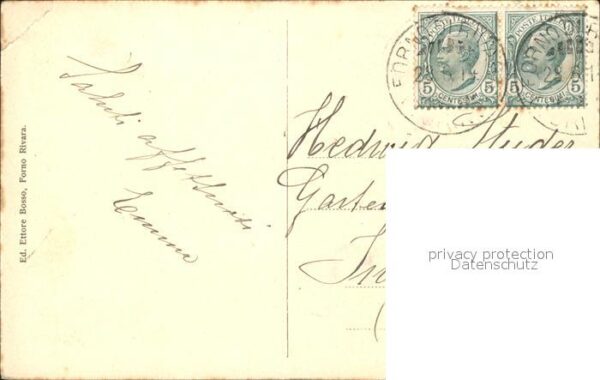 Ed. Ettore Bosso, Forno Rivara.
Saluti affettuosi
Emma
POSTE ITALIANE
5 CENTESIMI 5
5 CENTESIMI 5
Hedwig Studer
Garten
privacy protection
Datenschutz